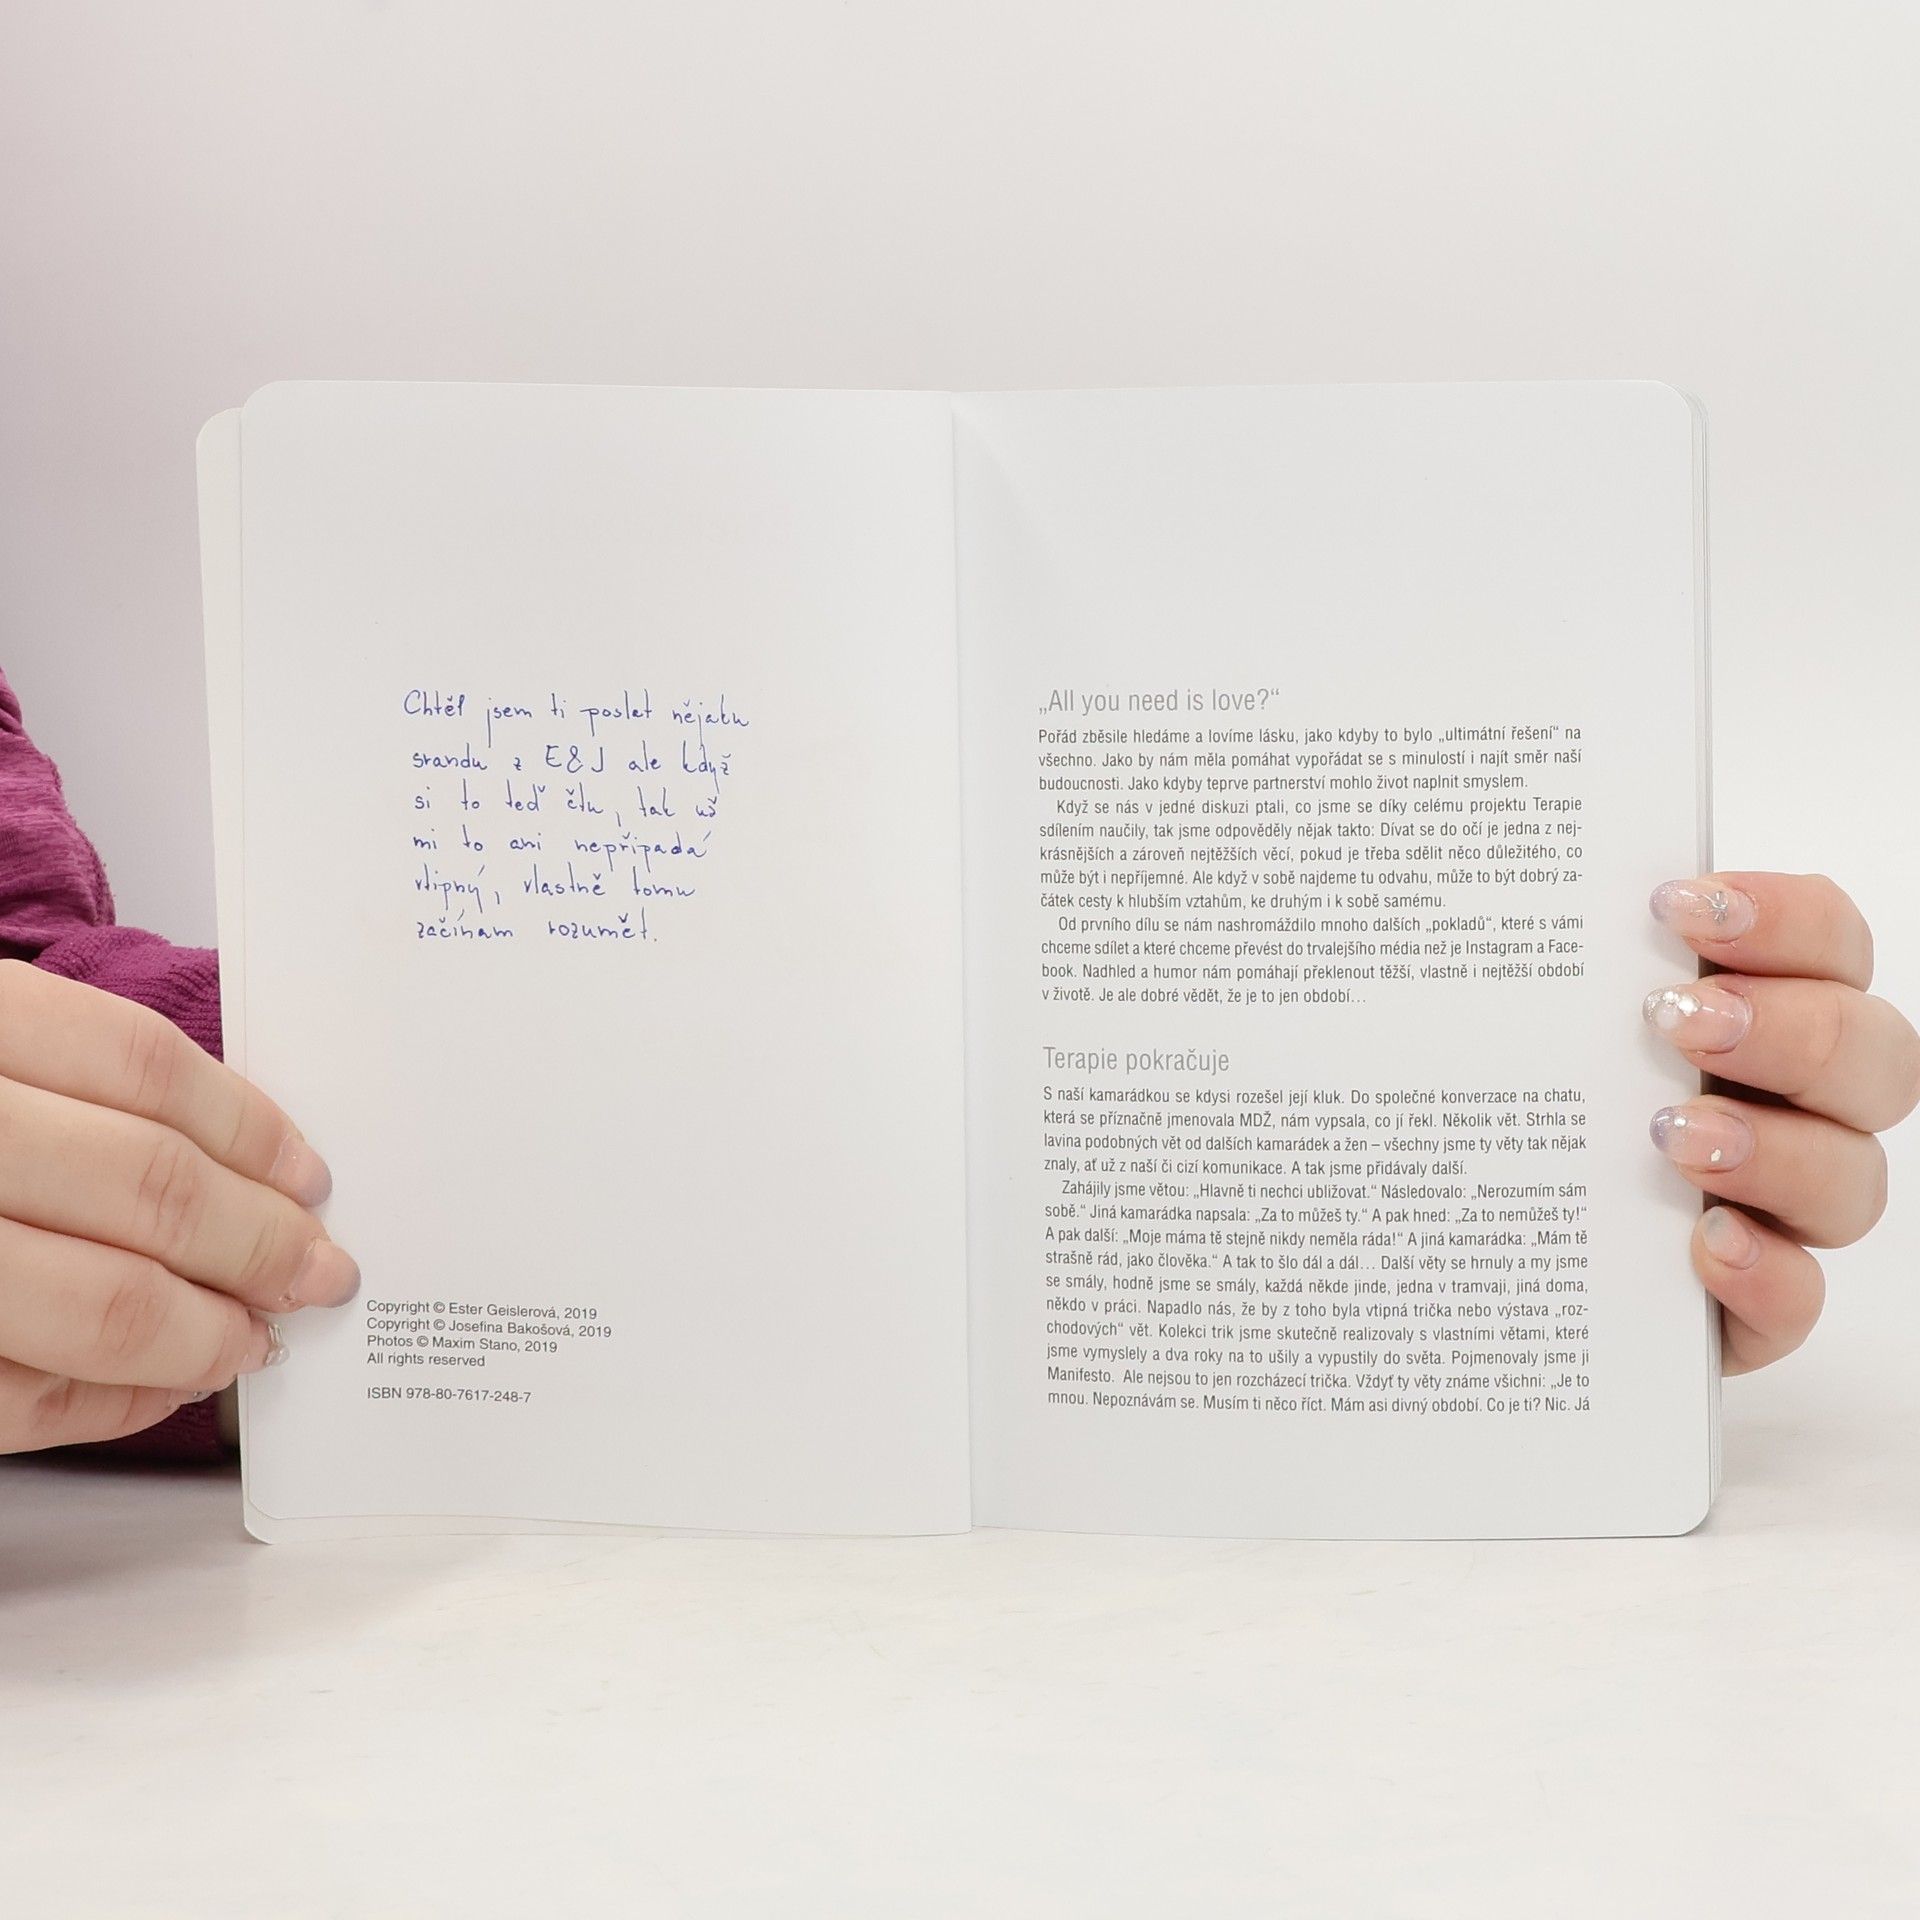 Chtěl jsem ti poslat nějaku
srandu z E&J ale když
si to teď čtu, tak už
mi to ani nepřipadá
vtipný, vlastně tomu
začínam rozumět.
Copyright © Ester Geislerová, 2019
Copyright © Josefina Bakošová, 2019
Photos © Maxim Stano, 2019
All rights reserved
ISBN 978-80-7617-248-7
„All you need is love?“
Pořád zběsile hledáme a lovíme lásku, jako kdyby to bylo „ultimátní řešení“ na
všechno. Jako by nám měla pomáhat vypořádat se s minulostí i najít směr naší
budoucnosti. Jako kdyby teprve partnerství mohlo život naplnit smyslem.
Když se nás v jedné diskuzi ptali, co jsme se díky celému projektu Terapie
sdílením naučily, tak jsme odpověděly nějak takto: Dívat se do očí je jedna z nej-
krásnějších a zároveň nejtěžších věcí, pokud je třeba sdělit něco důležitého, co
může být i nepříjemné. Ale když v sobě najdeme tu odvahu, může to být dobrý za-
čátek cesty k hlubším vztahům, ke druhým i k sobě samému.
Od prvního dílu se nám nashromáždilo mnoho dalších „pokladů“, které s vámi
chceme sdílet a které chceme převést do trvalejšího média než je Instagram a Face-
book. Nadhled a humor nám pomáhají překlenout těžší, vlastně i nejtěžší období
v životě. Je ale dobré vědět, že je to jen období…
Terapie pokračuje
S naší kamarádkou se kdysi rozešel její kluk. Do společné konverzace na chatu,
která se příznačně jmenovala MDŽ, nám vypsala, co jí řekl. Několik vět. Strhla se
lavina podobných vět od dalších kamarádek a žen – všechny jsme ty věty tak nějak
znaly, ať už z naší či cizí komunikace. A tak jsme přidávaly další.
Zahájily jsme větou: „Hlavně ti nechci ubližovat.“ Následovalo: „Nerozumím sám
sobě.“ Jiná kamarádka napsala: „Za to můžeš ty.“ A pak hned: „Za to nemůžeš ty!“
A pak další: „Moje máma tě stejně nikdy neměla ráda!“ A jiná kamarádka: „Mám tě
strašně rád, jako člověka.“ A tak to šlo dál a dál… Další věty se hrnuly a my jsme
se smály, hodně jsme se smály, každá někde jinde, jedna v tramvaji, jiná doma,
někdo v práci. Napadlo nás, že by z toho byla vtipná trička nebo výstava „roz-
chodových“ vět. Kolekci trik jsme skutečně realizovaly s vlastními větami, které
jsme vymyslely a dva roky na to ušily a vypustily do světa. Pojmenovaly jsme ji
Manifesto. Ale nejsou to jen rozcházecí trička. Vždyť ty věty známe všichni: „Je to
mnou. Nepoznávám se. Musím ti něco říct. Mám asi divný období. Co je ti? Nic. Já